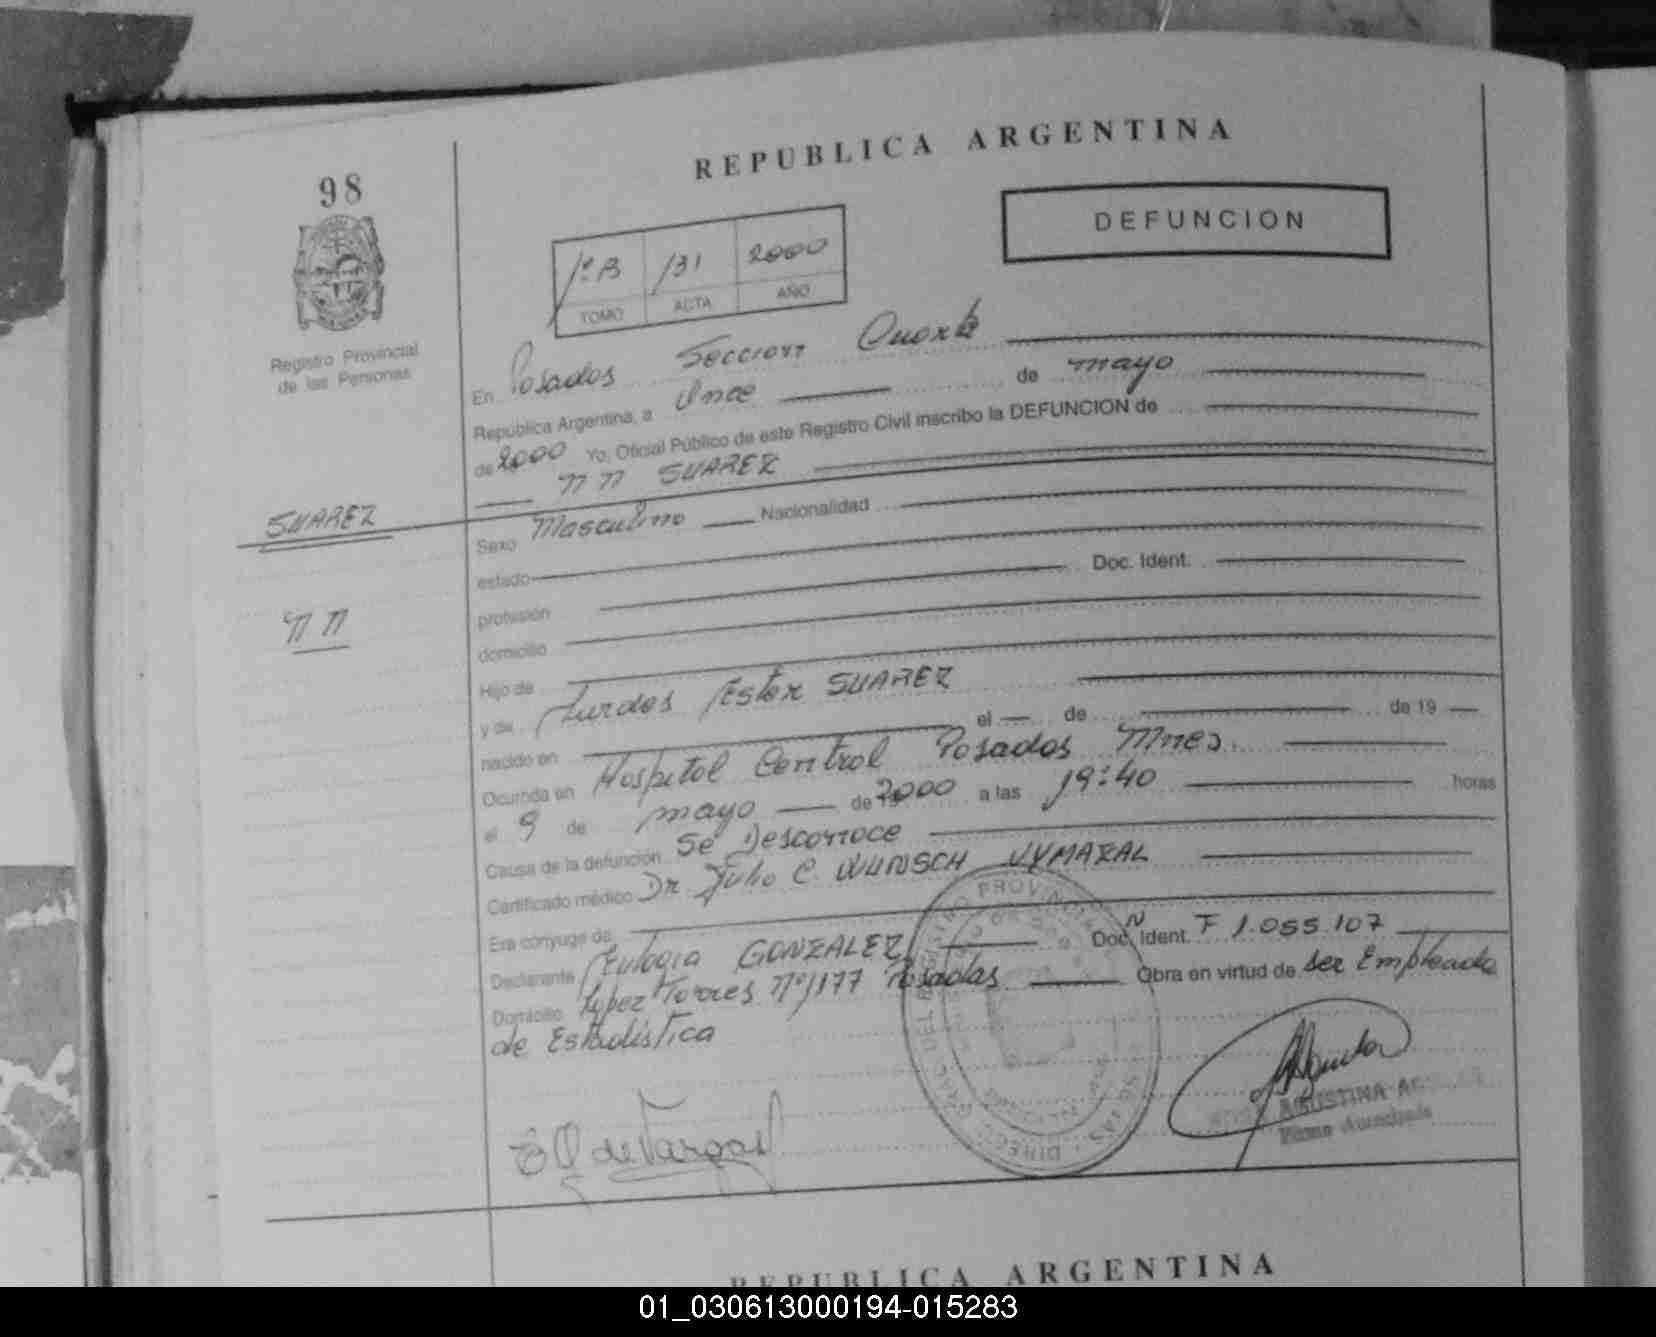 REPUBLICA ARGENTINA
98
DEFUNCION
1º B 131 2000
TOMO ACTA AÑO
Registro Provincial
de las Personas
En Posadas Seccion Cuarta
República Argentina, a Once de mayo
de 2000 Yo, Oficial Público de este Registro Civil inscribo la DEFUNCION de
NN SUAREZ
SUAREZ
Sexo Masculino Nacionalidad
estado
NN
profesión Doc. Ident.
domicilio
Hijo de
y de Lurdes Ester SUAREZ
nacido en el de de 19
Ocurrida en Hospital Central Posadas Mnes.
el 9 de mayo de 2000 a las 19:40 horas
Causa de la defunción Se Desconoce
Certificado médico Dr. Julio C. WUNSCH
Era cónyuge de
Declarante Eulogia GONZALEZ Doc. N Ident. F 1.055.107
Domicilio López Torres Nº 1177 Posadas Obra en virtud de ser Empleada
de Estadística
E G de Vargas
AGUSTINA
REPUBLICA ARGENTINA
01_030613000194-015283